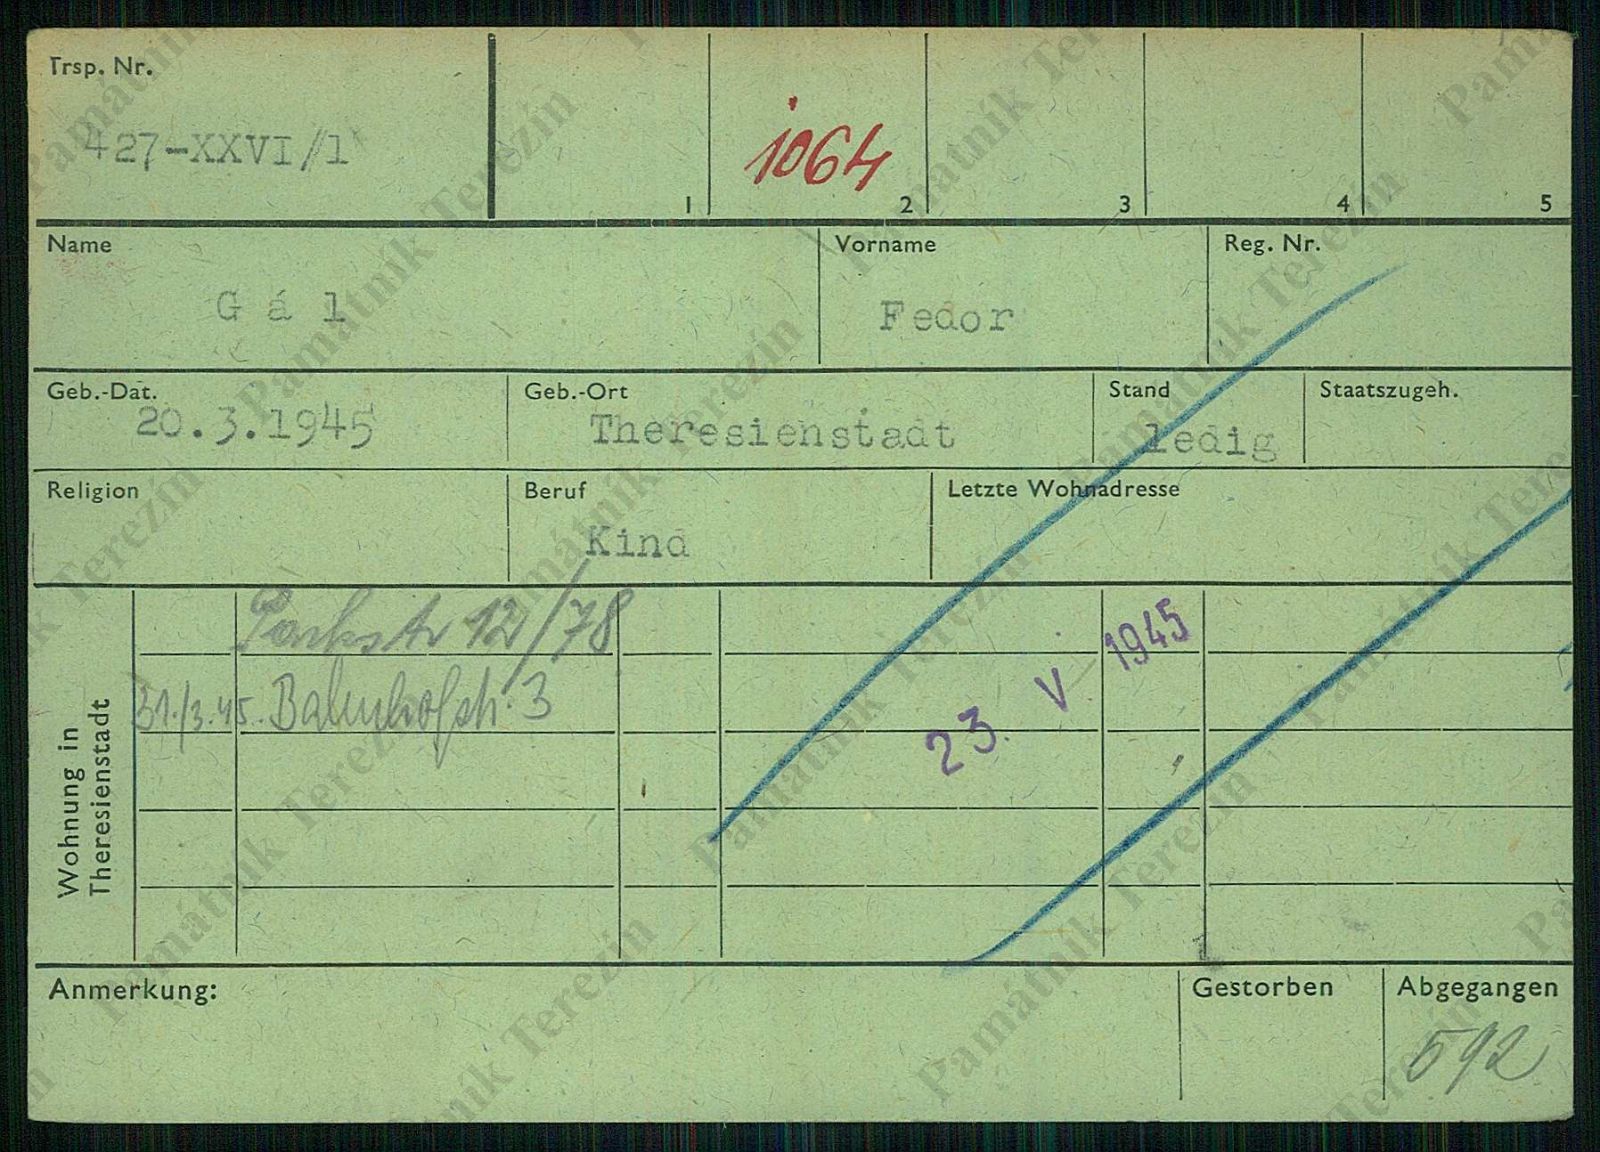 Trsp. Nr.
427-XXVI/1
1064
1 2 3 4 5
Name Vorname Reg. Nr.
Gál Fedor
Geb.-Dat. Geb.-Ort Stand Staatszugeh.
20.3.1945 Theresienstadt ledig
Religion Beruf Letzte Wohnadresse
Kind
Wohnung in
Theresienstadt
Parkstr 12/78
31./3.45. Bahnhofstr. 3
23. V 1945
Anmerkung: Gestorben Abgegangen
592
Památník Terezín